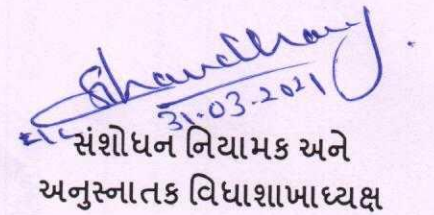 31-03-2021
સંશોધન નિયામક અને
અનુસ્નાતક વિધાશાખાધ્યક્ષ